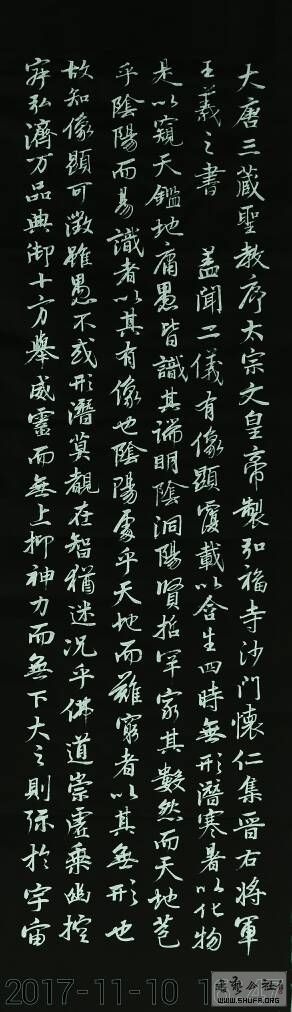 大唐三藏聖教序太宗文皇帝製弘福寺沙門懷仁集晉右將軍
王羲之書 蓋聞二儀有像顯覆載以含生四時無形潛寒暑以化物
是以窺天鑑地庸愚皆識其端明陰洞陽賢哲罕窮其數然而天地苞
乎陰陽而易識者以其有像也陰陽處乎天地而難窮者以其無形也
故知像顯可徵雖愚不惑形潛莫覩在智猶迷况乎佛道崇虛乘幽控
寂弘濟万品典御十方舉威靈而無上抑神力而無下大之則弥於宇宙
2017-11-10 1
書藝公社
WWW.SHUFA.ORG